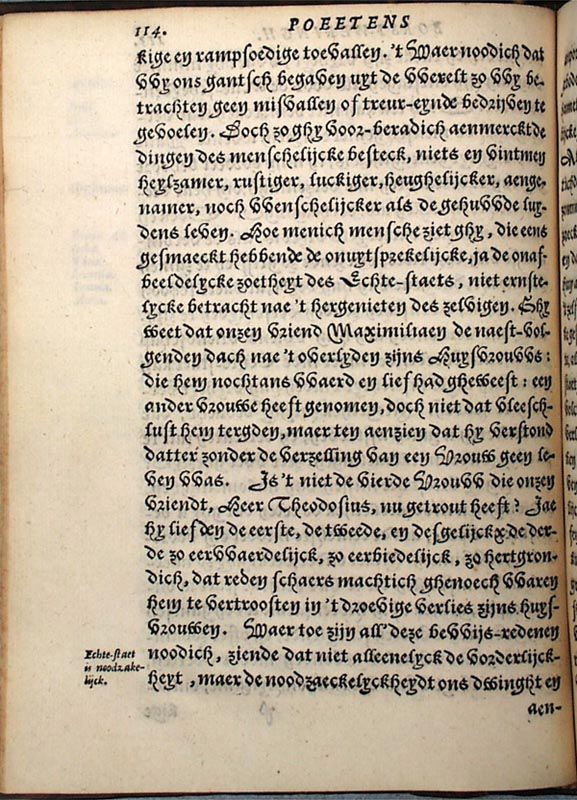 114. POEETENS
kige en rampsoedige toevallen. 't Waer noodich dat
vvy ons gantsch begaven uyt de vverelt zo vvy be-
trachten geen misvallen of treur-eynde bedrijven te
gevoelen. Doch zo ghy voor-beradich aenmerckt de
dingen des menschelijcke besteck, niets en vintmen
heylzamer, rustiger, luckiger, heughelijcker, aenge-
namer, noch vvenschelijcker als de gehuvvde luy-
dens leven. Hoe menich mensche ziet ghy, die eens
gesmaeckt hebbende de onuytsprekelijcke, ja de onaf-
beeldelycke zoetheyt des Echte-staets, niet ernste-
lycke betracht nae 't hergenieten des zelvigen. Ghy
weet dat onzen vriend Maximiliaen de naest-vol-
genden dach nae 't overlyden zijns Huysvrouvvs:
die hem nochtans vvaerd en lief had gheweest: een
ander vrouwe heeft genomen, doch niet dat vleesch-
lust hem tergden, maer ten aenzien dat hy verstond
datter zonder de verzelling van een Vrouw geen le-
ven vvas. Is 't niet de vierde Vrouvv die onzen
vriendt, Heer Theodosius, nu getrout heeft? Jae
hy liefden de eerste, de tweede, en desgelijckx de der-
de zo eervvaerdelijck, zo eerbiedelijck, zo hertgron-
dich, dat reden schaers machtich ghenoech vvaren
hem te vertroosten in 't droevige verlies zijns huys-
vrouwen. Waer toe zijn all' deze bevvijs-redenen
noodich, ziende dat niet alleenelyck de vorderlijck-
heyt, maer de noodzaeckelyckheydt ons dwinght en
aen-
Echte-staet
is noodzake-
lijck.